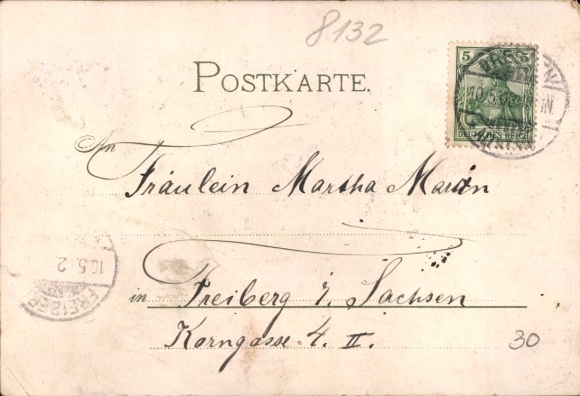 8132
POSTKARTE.
5 5
DEUTSCHES REICH
An
Fräulein Martha
in Freiberg i. Sachsen
Korngasse 4. II.
30
10.5.02
FREIBERG